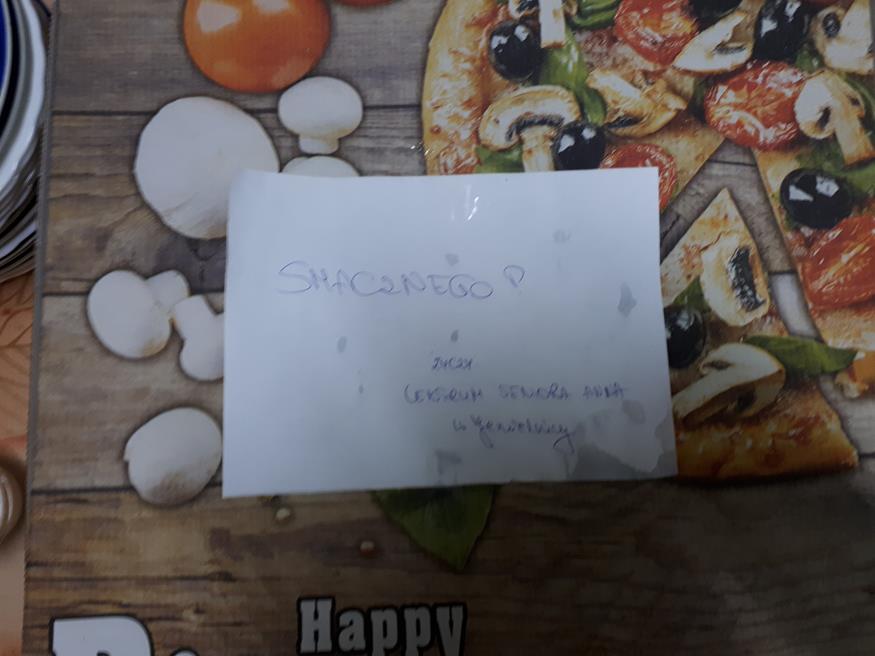 SMACZNEGO!
ŻYCZY
CENTRUM SENIORA ANNA
w
Happy